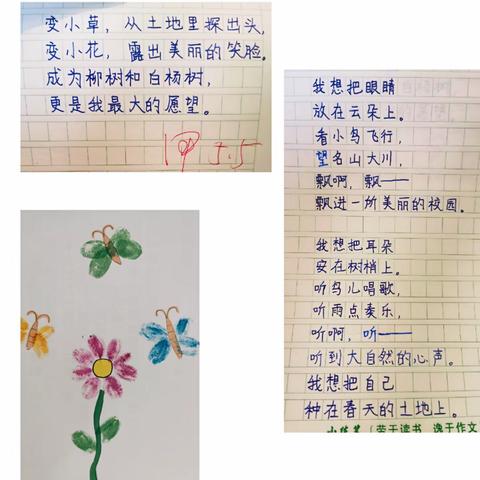 变小草，从土地里探出头，
变小花，露出美丽的笑脸。
成为柳树和白杨树，
更是我最大的愿望。
阅 5.5
我想把眼睛
放在云朵上。
看小鸟飞行，
望名山大川，
飘啊，飘——
飘进一所美丽的校园。
我想把耳朵
安在树梢上。
听鸟儿唱歌，
听雨点奏乐，
听啊，听——
听到大自然的心声。
我想把自己
种在春天的土地上。
小练笔（劳于读书，逸于作文